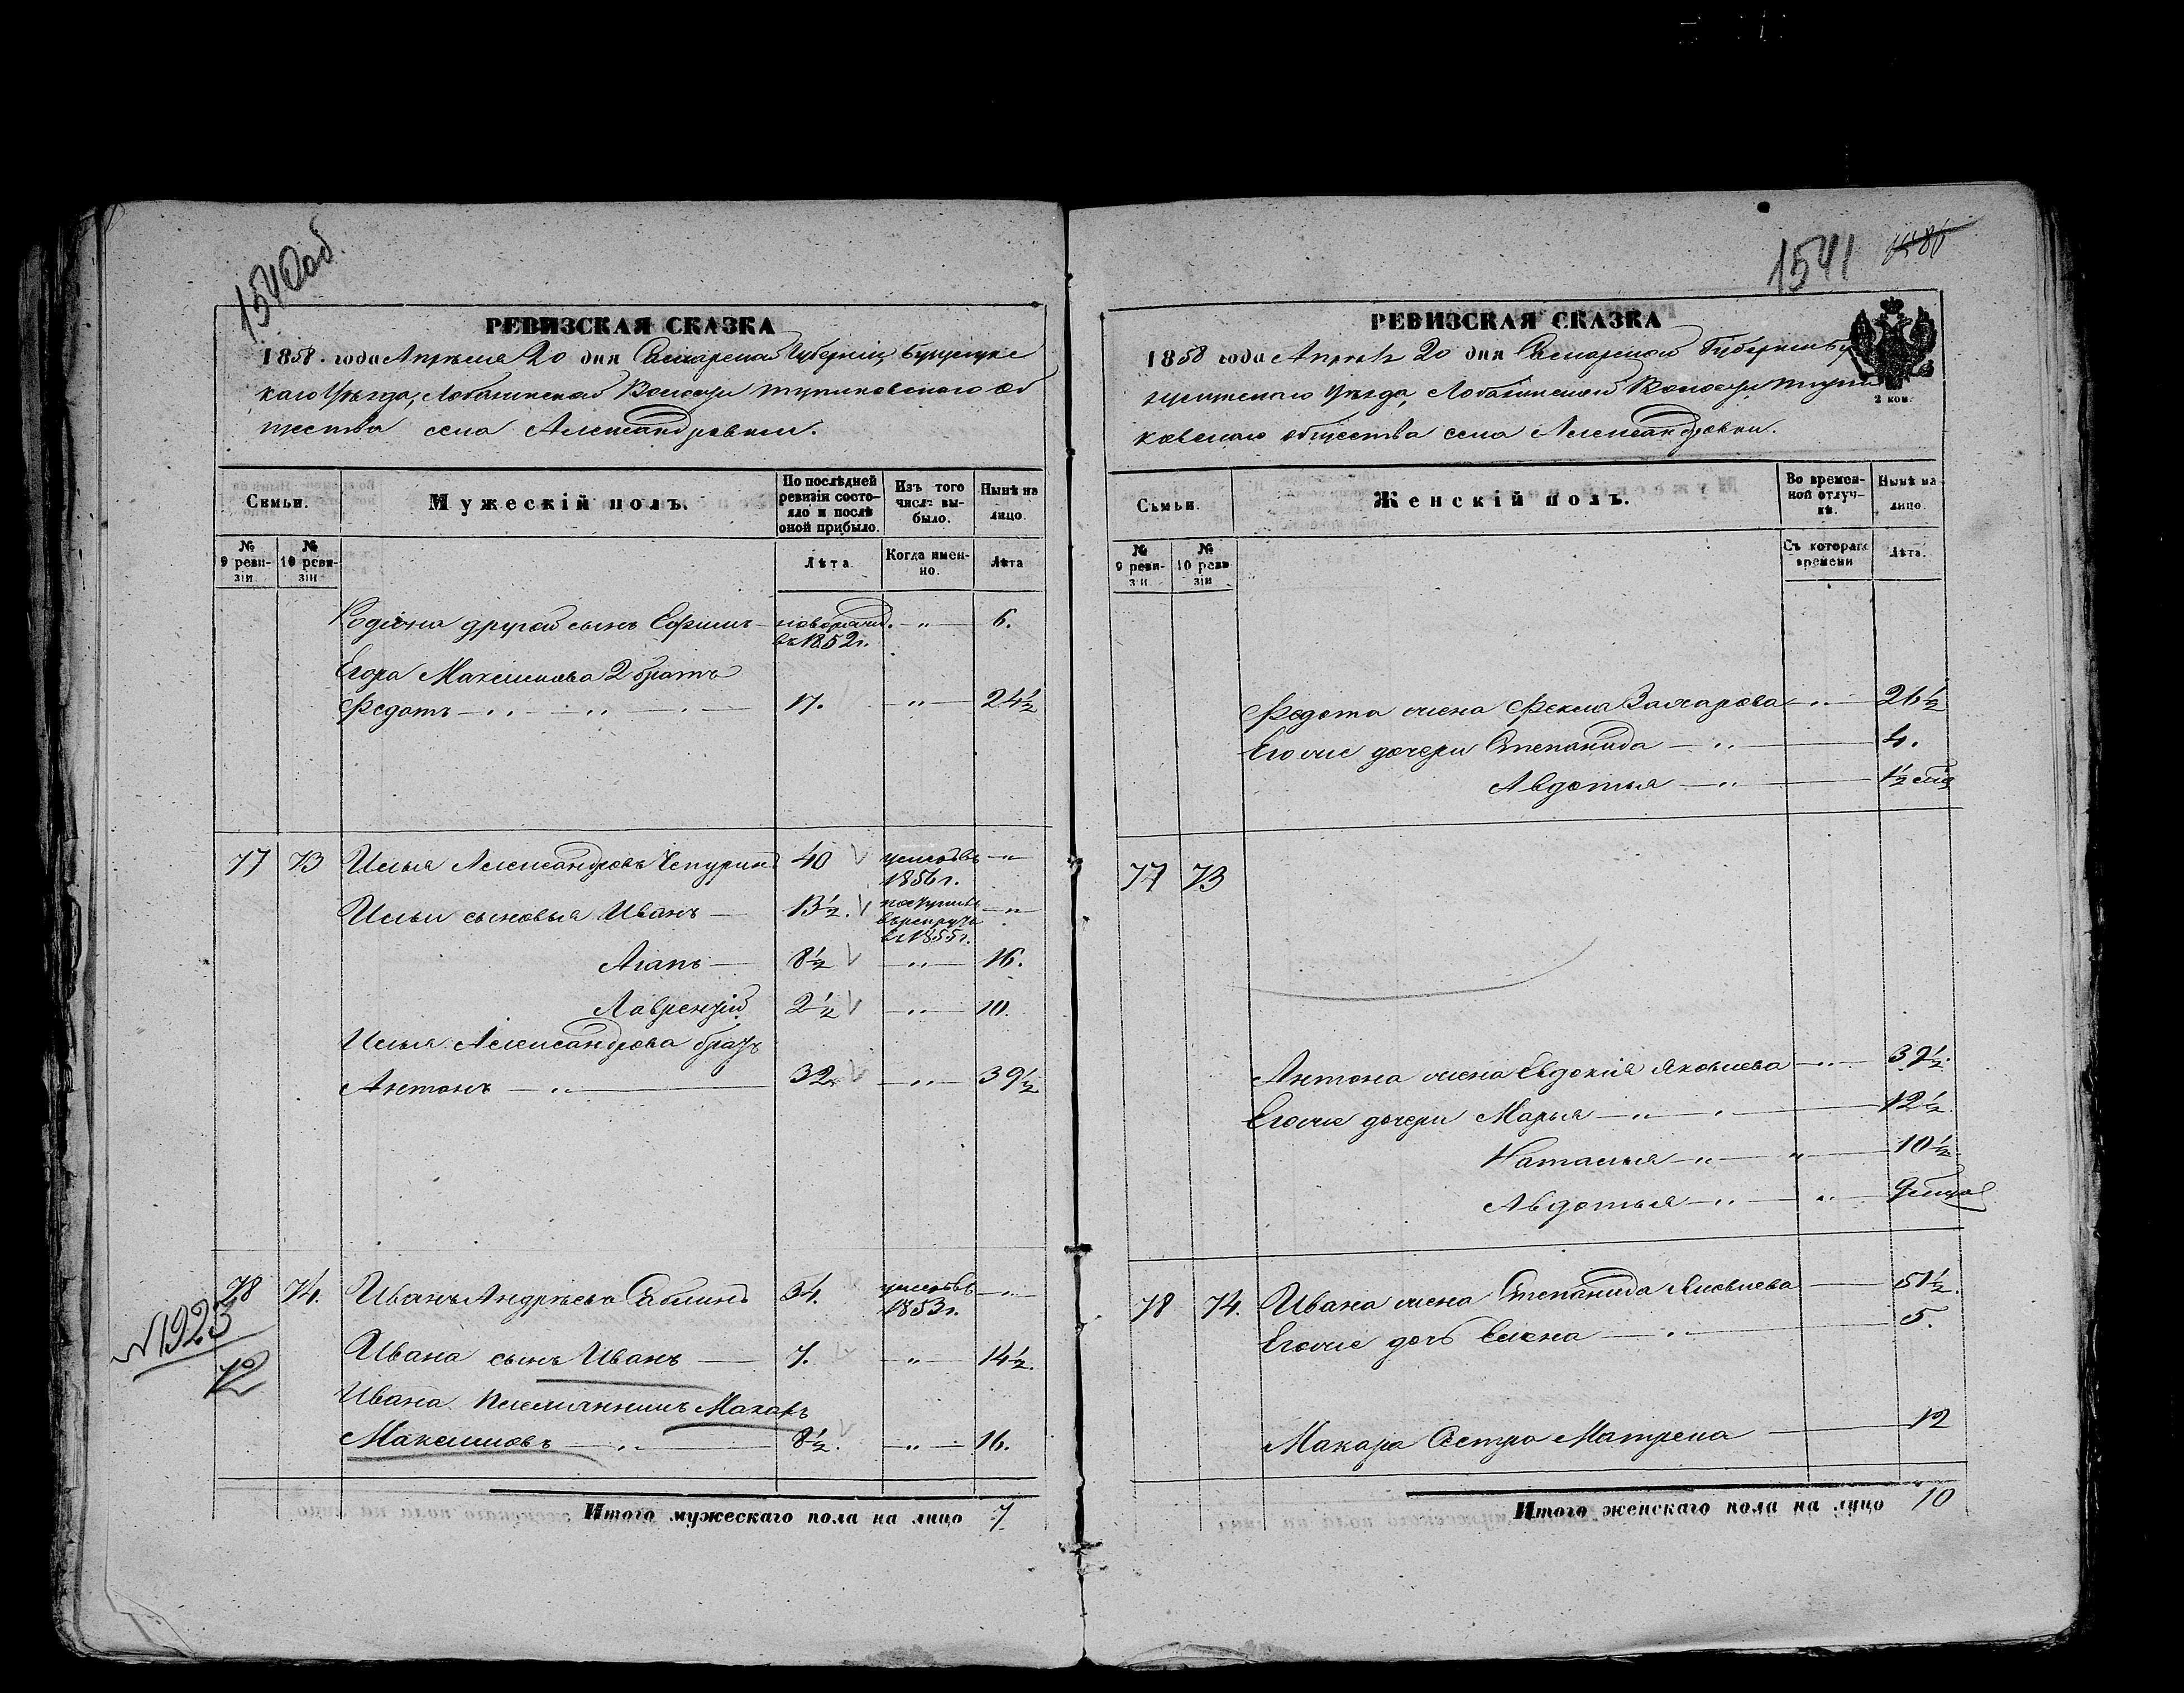 1540 об.
РЕВИЗСКАЯ СКАЗКА
1858. года Апрѣля 20 дня Самарской Губерніи, Бузулукс
каго Уѣзда, Лобазинской Волости Тупиковскаго Об
щества села Александровки.
Семьи.
Мужескій полъ.
По послѣдней ревизіи состояло и послѣ оной прибыло.
Изъ того числа выбыло.
Нынѣ на лицо.
№ 9 ревизіи
№ 10 ревизіи
Лѣта
Когда именно.
Лѣта
Родіона другой сынъ Ефимъ — новорожд. въ 1852 г. — " — 6.
Егора Максимова 2 братъ
Федотъ — " — " — 17. — " — 24½
77 73 Илья Александровъ Чепуринъ 40 умеръ въ 1856 г. — " —
Ильи сыновья Иванъ — 13½. поступилъ въ рекруты въ 1855 г. — " —
Агапъ — 8½ — " — 16.
Лаврентій 2½ — " — 10.
Илья Александрова братъ
Антонъ — " — 32 — " — 39½
78 74. Иванъ Андреевъ Саблинъ 34. умеръ въ 1853 г. — " —
Ивана сынъ Иванъ — 7. — " — 14½.
Ивана племянникъ Макаръ
Максимовъ — " — 8½. — " — 16.
№ 1923
Итого мужескаго пола на лицо 7
1541
РЕВИЗСКАЯ СКАЗКА
1858 года Апрѣля 20 дня Самарской Губерніи Бу
зулукскаго Уѣзда, Лобазинской Волости, Тупи
ковскаго общества села Александровки.
2 коп.
Семьи.
Женскій полъ.
Во временной отлучкѣ.
Нынѣ на лицо.
№ 9 ревизіи
№ 10 ревизіи
Съ котораго времени
Лѣта.
Федота жена Фекла Захарова — " — 26½
Его же дочери Степанида — " — 4.
Авдотья — " — ½
77 73
Антона жена Евдокія Яковлева — " — 39½.
Его же дочери Марья — " — 12½.
Наталья — " — " — 10½
Авдотья — " — "
78 74. Ивана жена Степанида Яковлева — 51½.
Его же дочь Елена — " — 5.
Макара сестра Матрена — 12
Итого женскаго пола на лицо 10